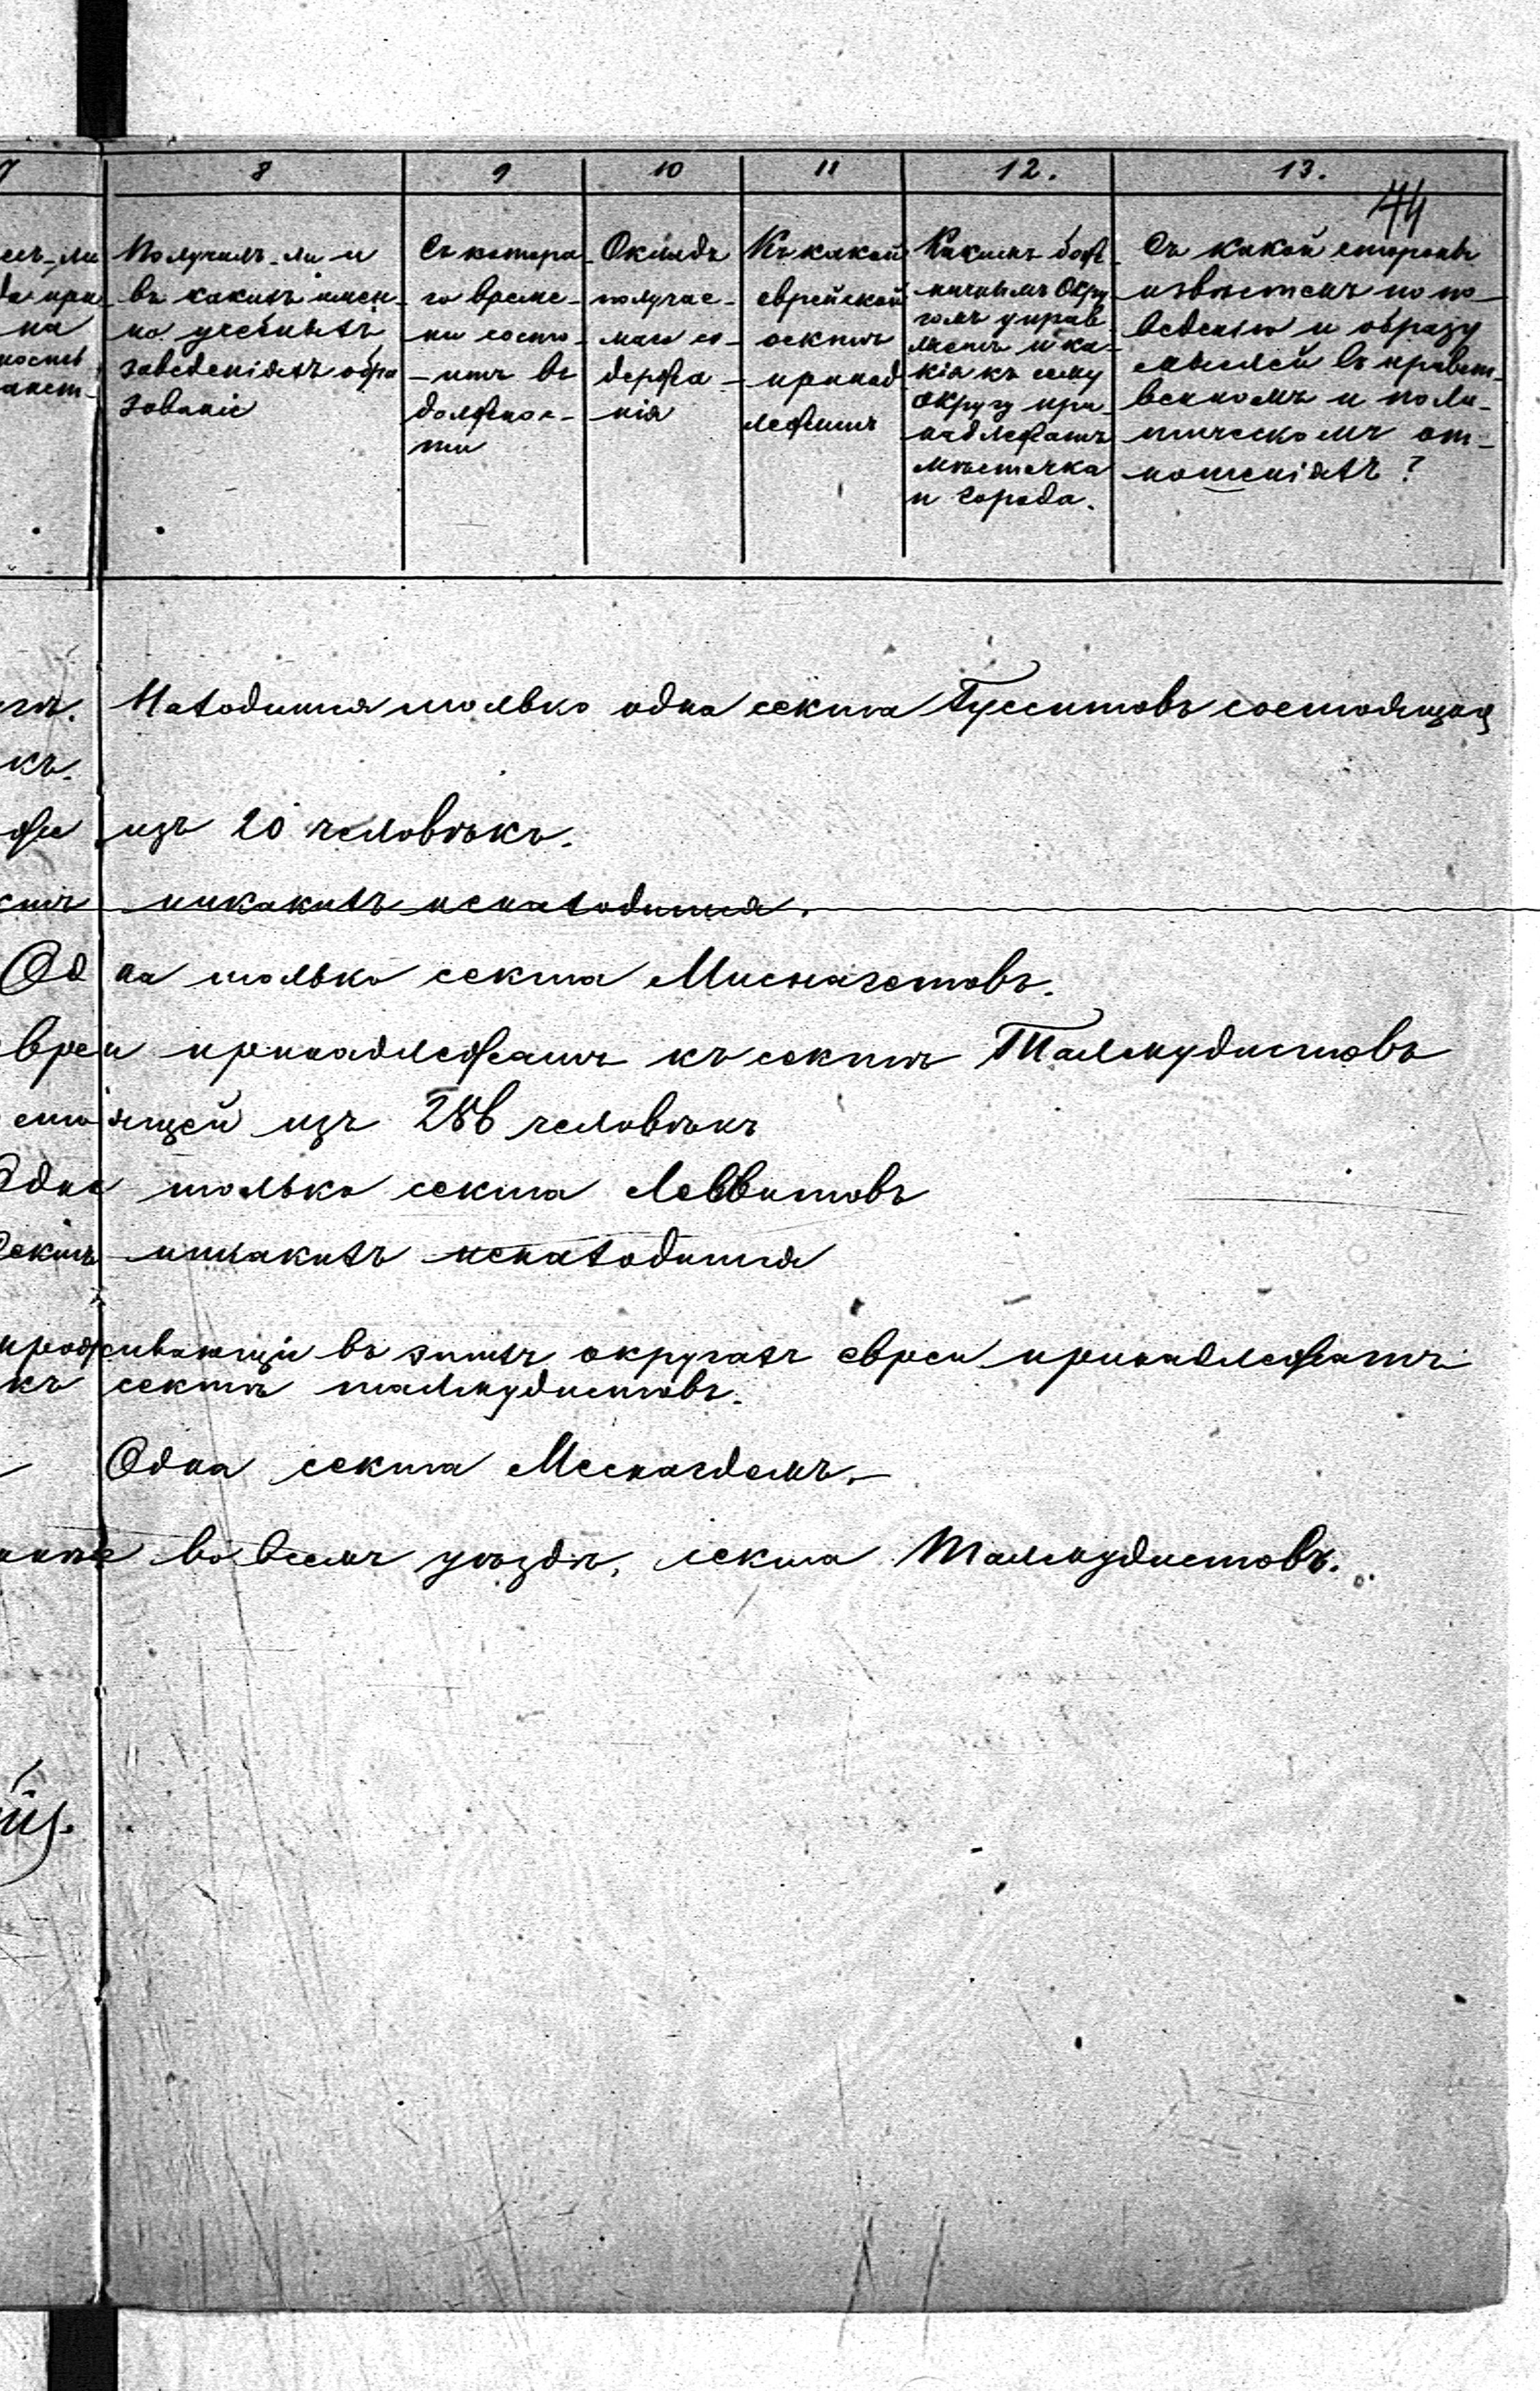 7 8 9 10 11 12. 13.
44
Получилъ-ли и
въ какихъ имен-
но учебныхъ
заведеніяхъ обра
зованіе
Съ котора-
го време-
ни состо-
-итъ въ
должнос-
ти
Окладъ
получае-
маго со-
держа-
нія
Къ какой
еврейской
сектѣ
принад
лежитъ
Какимъ боже
ничнымъ Окру
гомъ управ
ляетъ и ка-
кія къ сему
округу при-
надлежатъ
мѣстечка
и города.
Съ какой стороны
извѣстенъ по по-
веденію и образу
мыслей въ нравст-
венномъ и поли-
тическомъ от-
ношеніяхъ?
Находится только одна секта Гусситовъ состоящая
къ.
же изъ 20 человѣкъ.
никакихъ ненаходится.
Одна только секта Миснагетовъ.
вреи принадлежатъ къ сектѣ Талмудистовъ
стоящей изъ 286 человѣкъ
Одна только секта Леввитовъ
Сектъ никакихъ ненаходится
проживающіи въ этихъ округахъ евреи принадлежатъ
къ сектѣ талмудистовъ.
Одна секта Меснагдемъ.
во всемъ уѣздѣ, секта Талмудистовъ.